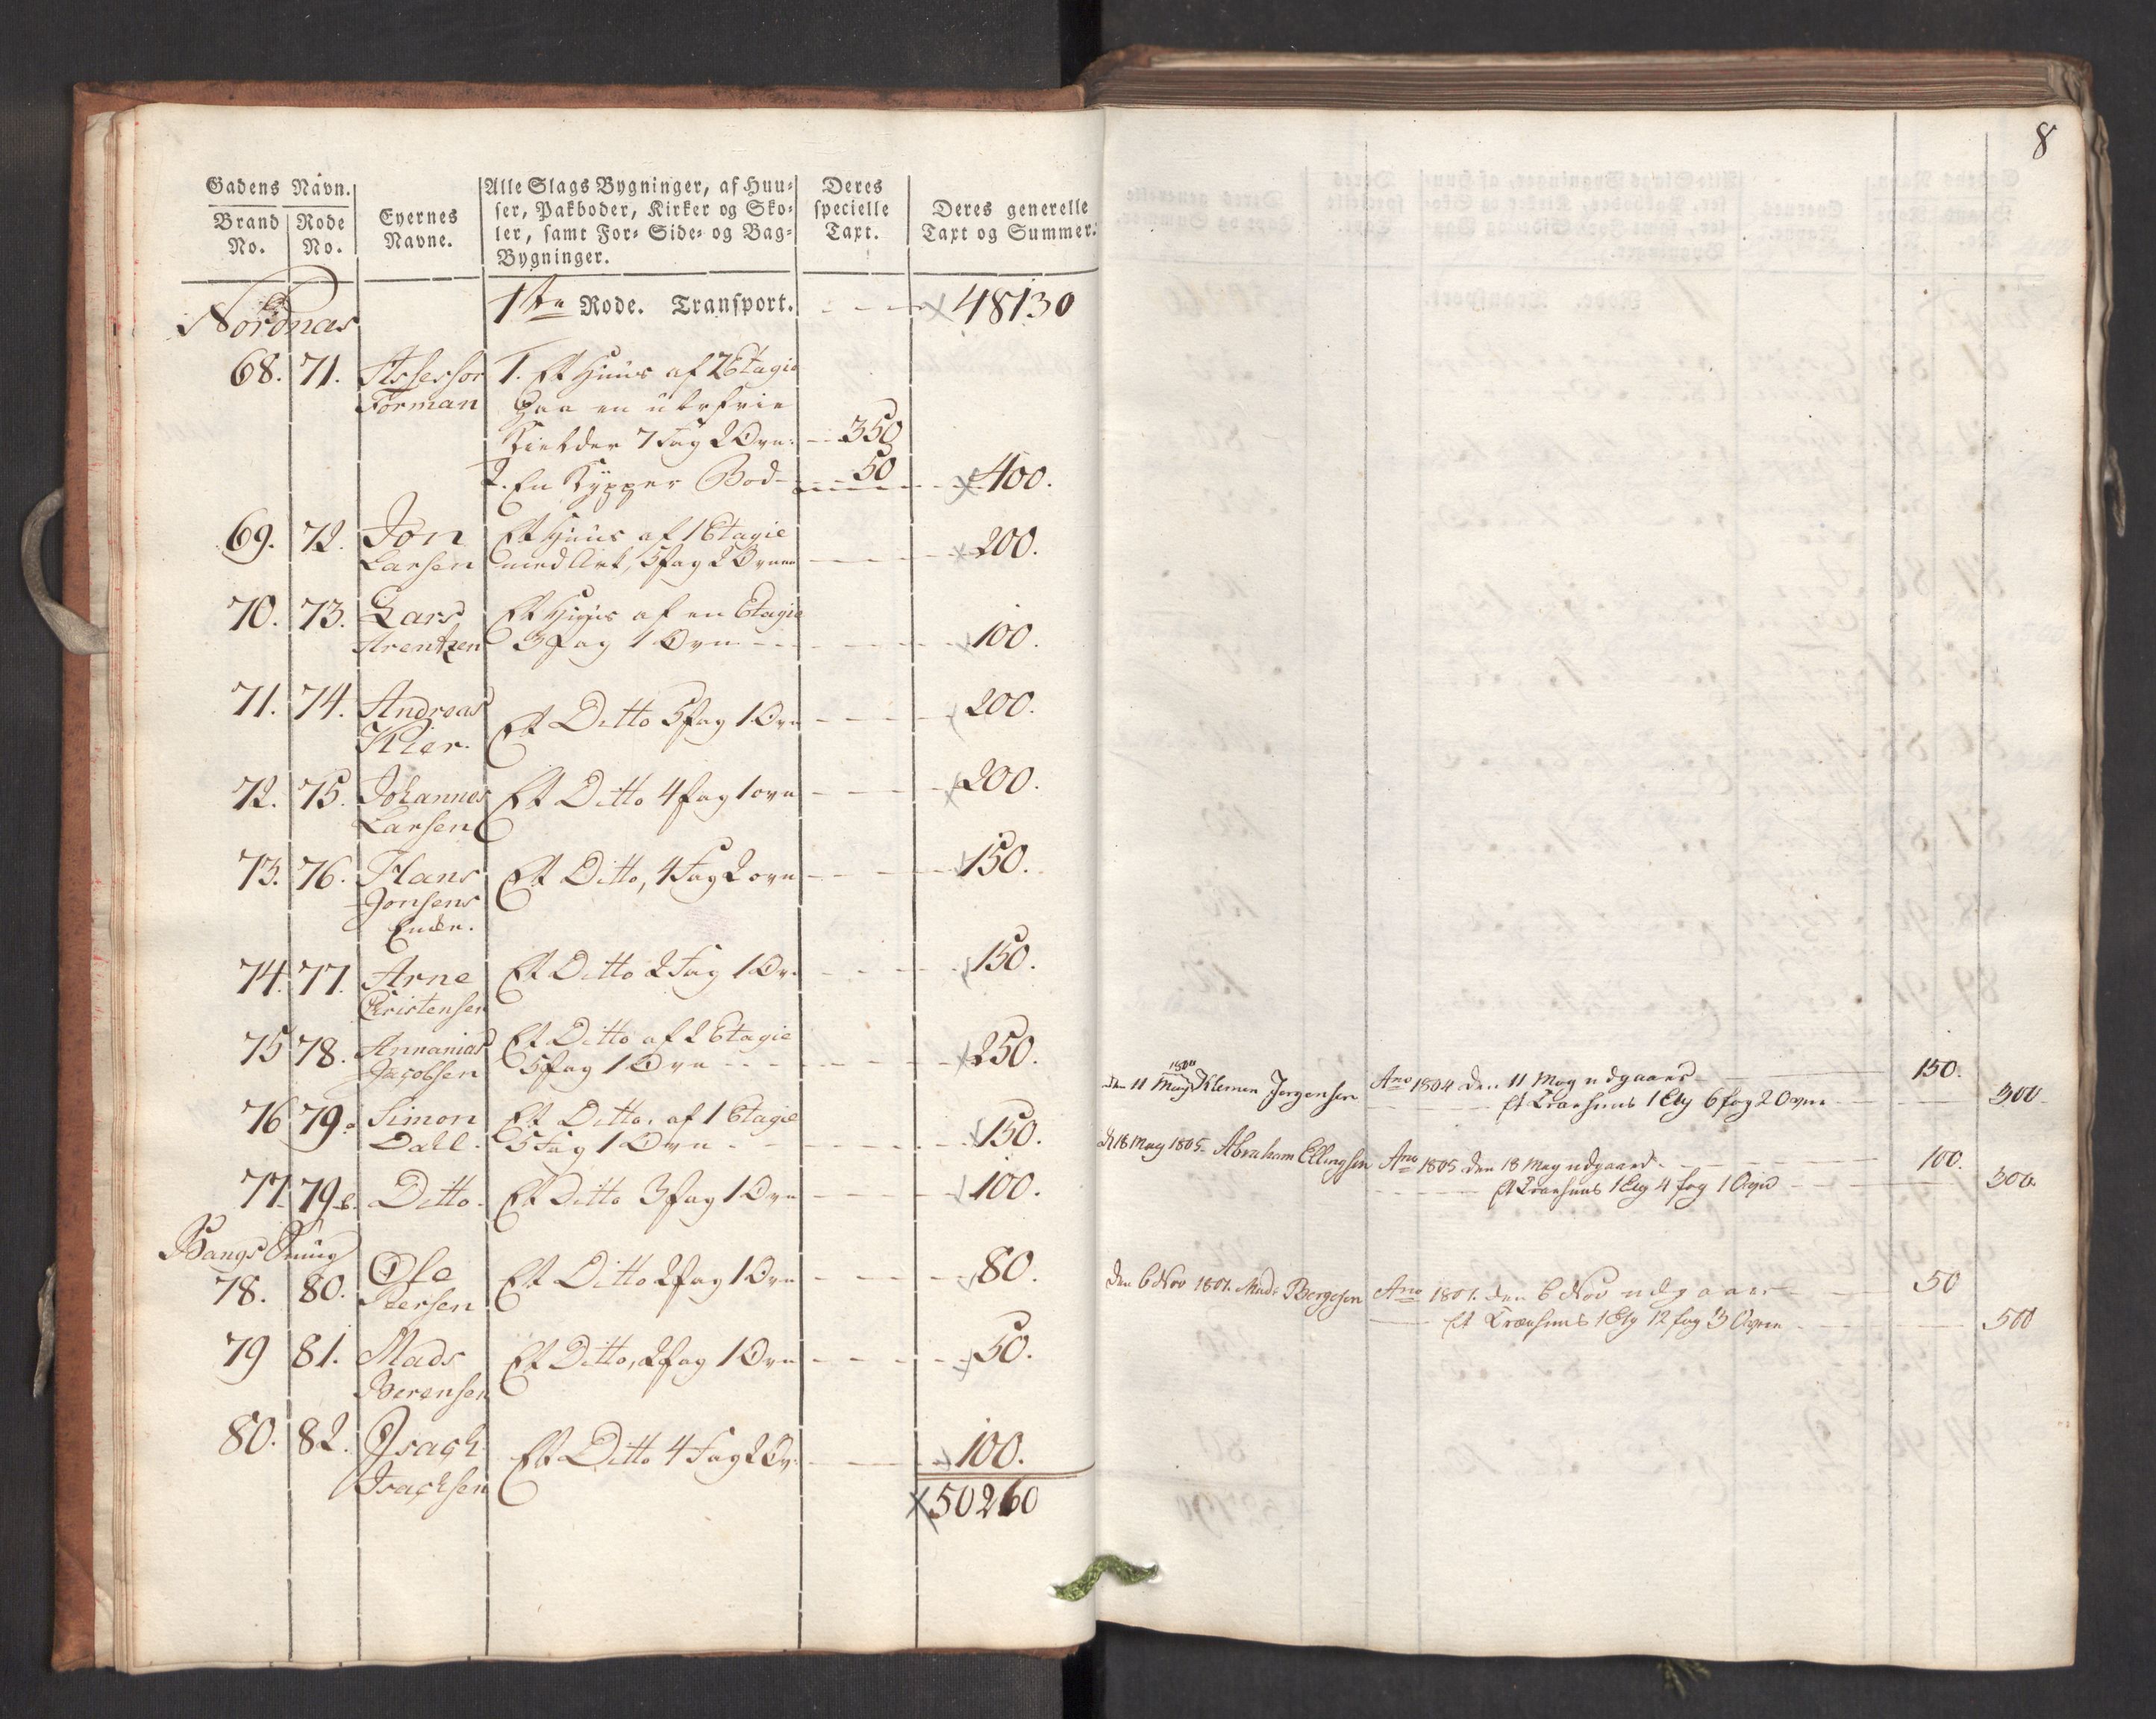 Gadens Navn.
Brand No. Rode No. Eyernes Navne. Alle Slags Bygninger, af Huu-
ser, Pakboder, Kirker og Sko-
ler, samt For- Side- og Bag-
Bygninger. Deres specielle Taxt. Deres generelle Taxt og Summer.
Nordnas 1ste Rode. Transport. 48130
68. 71. Assessor 1. Et Huus af 2 Etagie
Forman
Kielder 7 Fag 2 Ovn: 350
2. En Kypper Bod 50 400.
69. 72. Jon Et Huus af 1 Etagie
Larsen med Ark, 5 fag 2 Ovnn 200.
70. 73. Lars Et Huus af en Etagie
Arentzen 3 fag 1 Ovn 100.
71. 74. Andreas Et Ditto 5 fag 1 Ovn 200.
Kier.
72. 75. Johannes Et Ditto 4 fag 1 ovn 200.
Larsen
73. 76. Hans Et Ditto, 4 Fag 2 ovn 150.
Jonsens
Enken.
74. 77. Arne Et Ditto 2 Fag 1 Ov. 150.
Christensen
75 78. Annanias Et Ditto af 2 Etagie
Jacobsen 5 fag 1 Ovn 250.
76 79a Simon Et Ditto. af 1 Etagie
Dall. 5 Fag 1 Ovn 150.
77. 79b. Ditto. Et Ditto 3 fag 1 Ovn 100.
Bangs Smug
78. 80. Ole Et Ditto 2 fag 1 Ovn 80.
Persen
79 81. Mads Et Ditto, 2 fag 1 Ovn 50.
Berensen
80. 82. Isach Et Ditto 4 Fag 2 Ov. 100.
Isachsen
50260
8
1804
den 11 May Klemen Jørgensen Ano 1804 den 11 May udgaaer 150.
Et Træehuus 1 Etg 6 fag 2 Ovne 300
d 18 May 1805 Abraham Ellingsen Ano 1805 den 18 May udgaaer 100.
Et Træehuus 1 Etg 4 fag 1 Ovn 300
den 6 Nov 1801. Mads Bergesen Ano 1801. den 6 Nov udgaaer 50
Et Træehuus 1 Etg 12 fag 3 Ovne 500